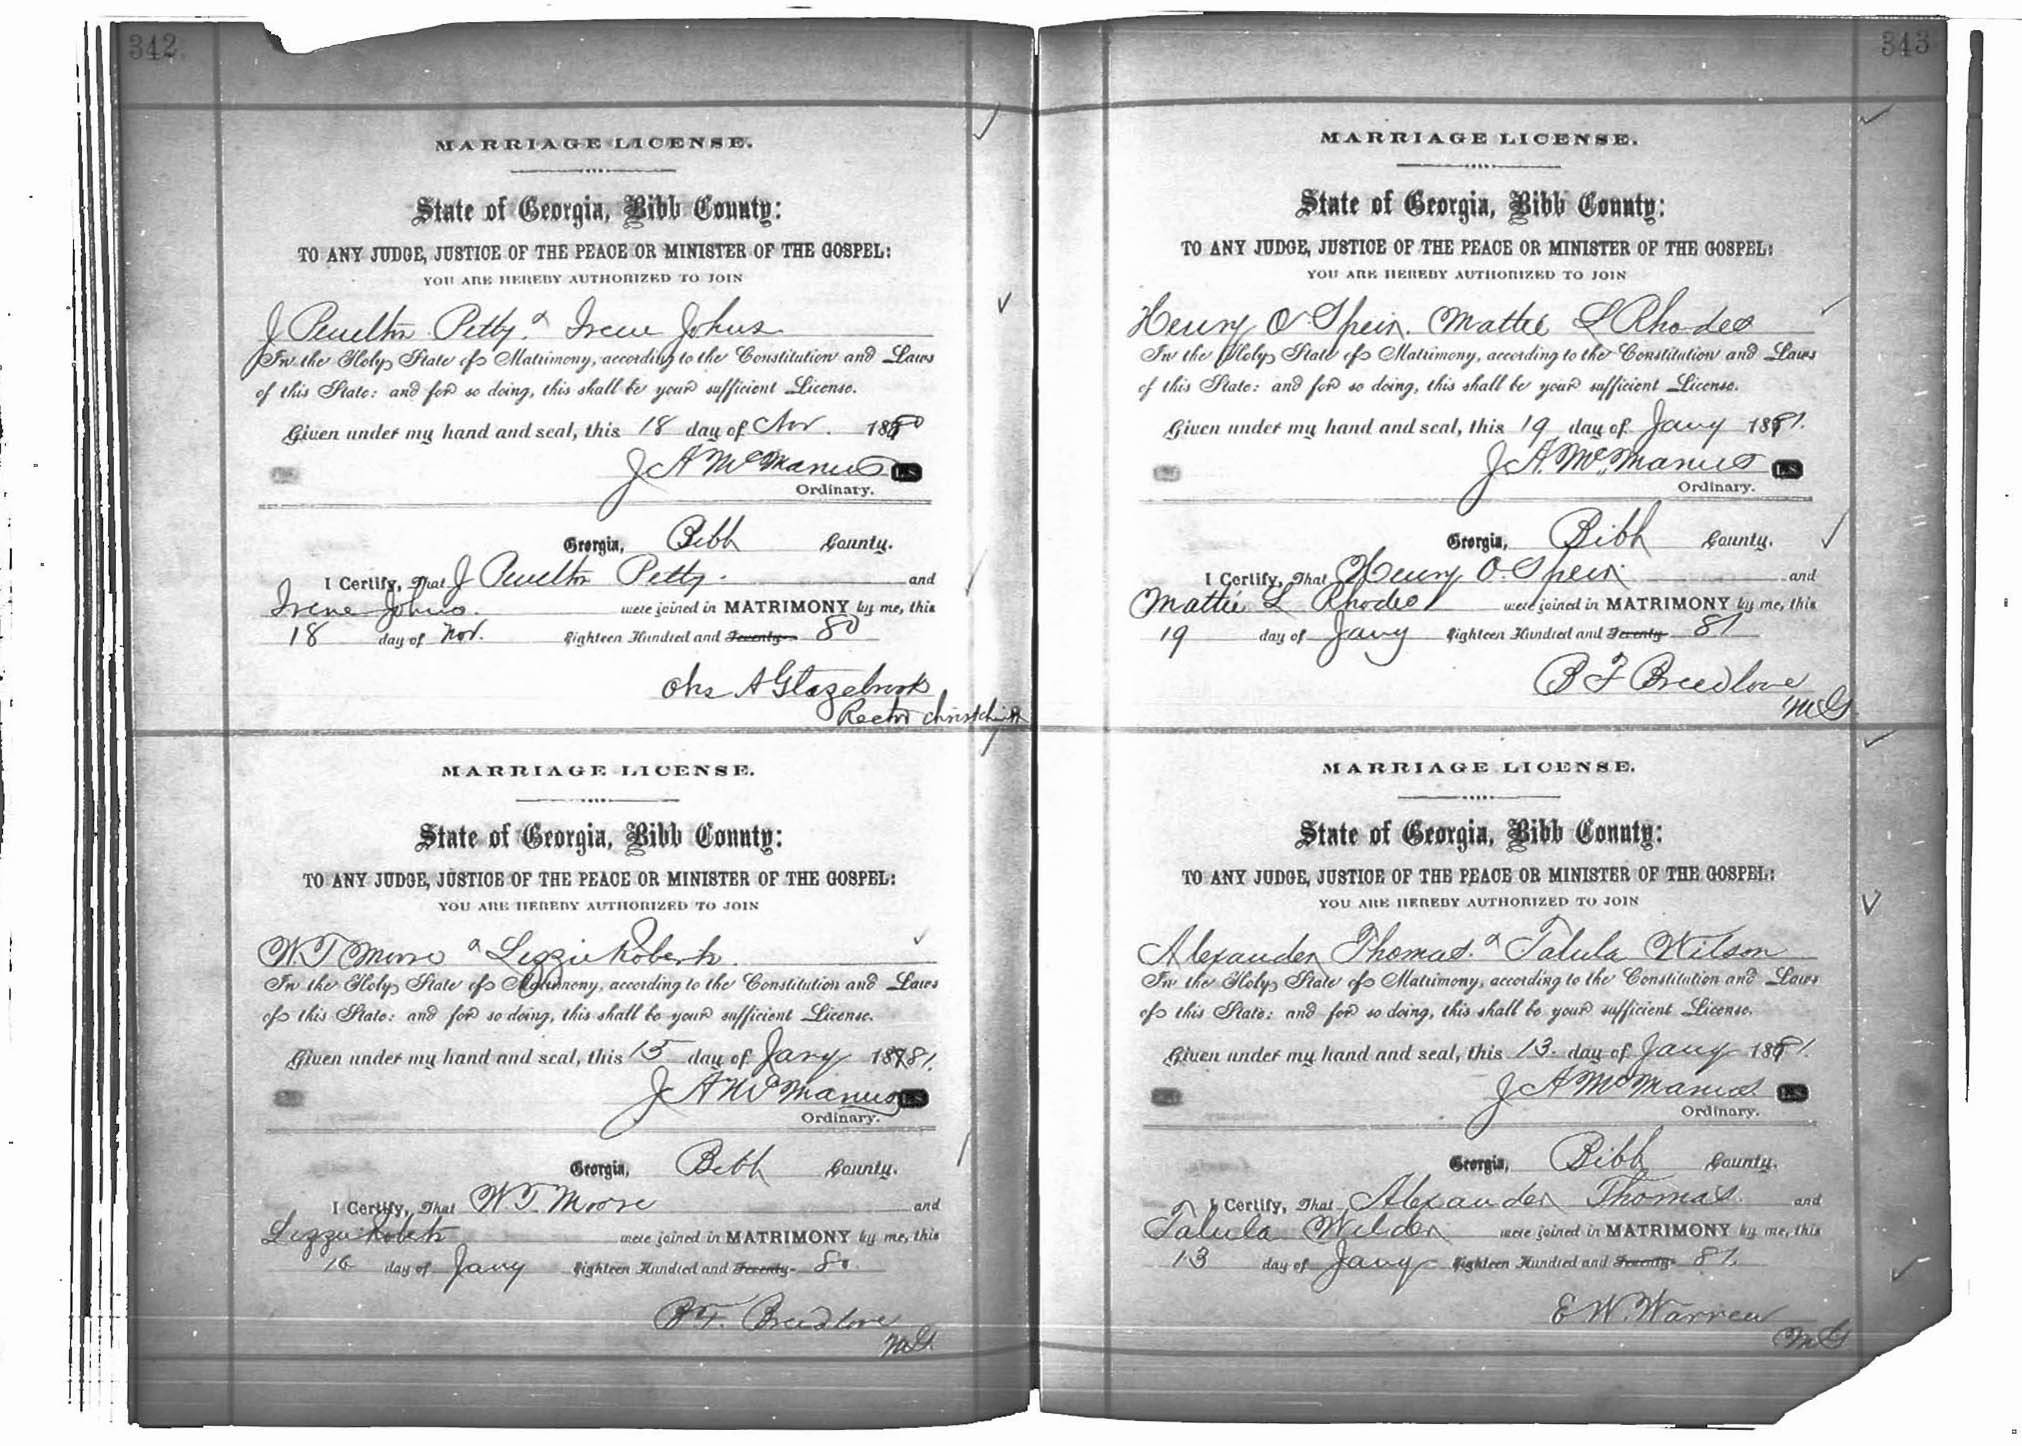 342.
MARRIAGE LICENSE.
State of Georgia, Bibb County:
TO ANY JUDGE, JUSTICE OF THE PEACE OR MINISTER OF THE GOSPEL:
YOU ARE HEREBY AUTHORIZED TO JOIN
J Petty & Irene Johns
In the Holy State of Matrimony, according to the Constitution and Laws
of this State: and for so doing, this shall be your sufficient License.
Given under my hand and seal, this 18 day of Nov. 1880
J A McManus L.S.
Ordinary.
Georgia, Bibb County.
I Certify, That J Petty. and
Irene Johns. were joined in MATRIMONY by me, this
18 day of Nov. Eighteen Hundred and Seventy- 80
A Glazebrook
Rector Christ Church
MARRIAGE LICENSE.
State of Georgia, Bibb County:
TO ANY JUDGE, JUSTICE OF THE PEACE OR MINISTER OF THE GOSPEL:
YOU ARE HEREBY AUTHORIZED TO JOIN
W T Moore & Lizzie Roberts.
In the Holy State of Matrimony, according to the Constitution and Laws
of this State: and for so doing, this shall be your sufficient License.
Given under my hand and seal, this 15 day of Jany 1881.
J A McManus L.S.
Ordinary.
Georgia, Bibb County.
I Certify, That W. T. Moore and
Lizzie Roberts were joined in MATRIMONY by me, this
16 day of Jany Eighteen Hundred and Seventy- 81
B F. Breedlove
M G.
343
MARRIAGE LICENSE.
State of Georgia, Bibb County:
TO ANY JUDGE, JUSTICE OF THE PEACE OR MINISTER OF THE GOSPEL:
YOU ARE HEREBY AUTHORIZED TO JOIN
Henry O Speir. Mattie L Rhodes
In the Holy State of Matrimony, according to the Constitution and Laws
of this State: and for so doing, this shall be your sufficient License.
Given under my hand and seal, this 19 day of Jany 1881.
J A. McManus L.S.
Ordinary.
Georgia, Bibb County.
I Certify, That Henry O. Speir and
Mattie L Rhodes were joined in MATRIMONY by me, this
19 day of Jany Eighteen Hundred and Seventy- 81
B F Breedlove
M G
MARRIAGE LICENSE.
State of Georgia, Bibb County:
TO ANY JUDGE, JUSTICE OF THE PEACE OR MINISTER OF THE GOSPEL:
YOU ARE HEREBY AUTHORIZED TO JOIN
Alexander Thomas. & Talula Wilson
In the Holy State of Matrimony, according to the Constitution and Laws
of this State: and for so doing, this shall be your sufficient License.
Given under my hand and seal, this 13. day of Jany 1881.
J A McManus L.S.
Ordinary.
Georgia, Bibb County.
I Certify, That Alexander Thomas. and
Talula Wilder were joined in MATRIMONY by me, this
13 day of Jany Eighteen Hundred and Seventy- 81.
E W. Warren
M G